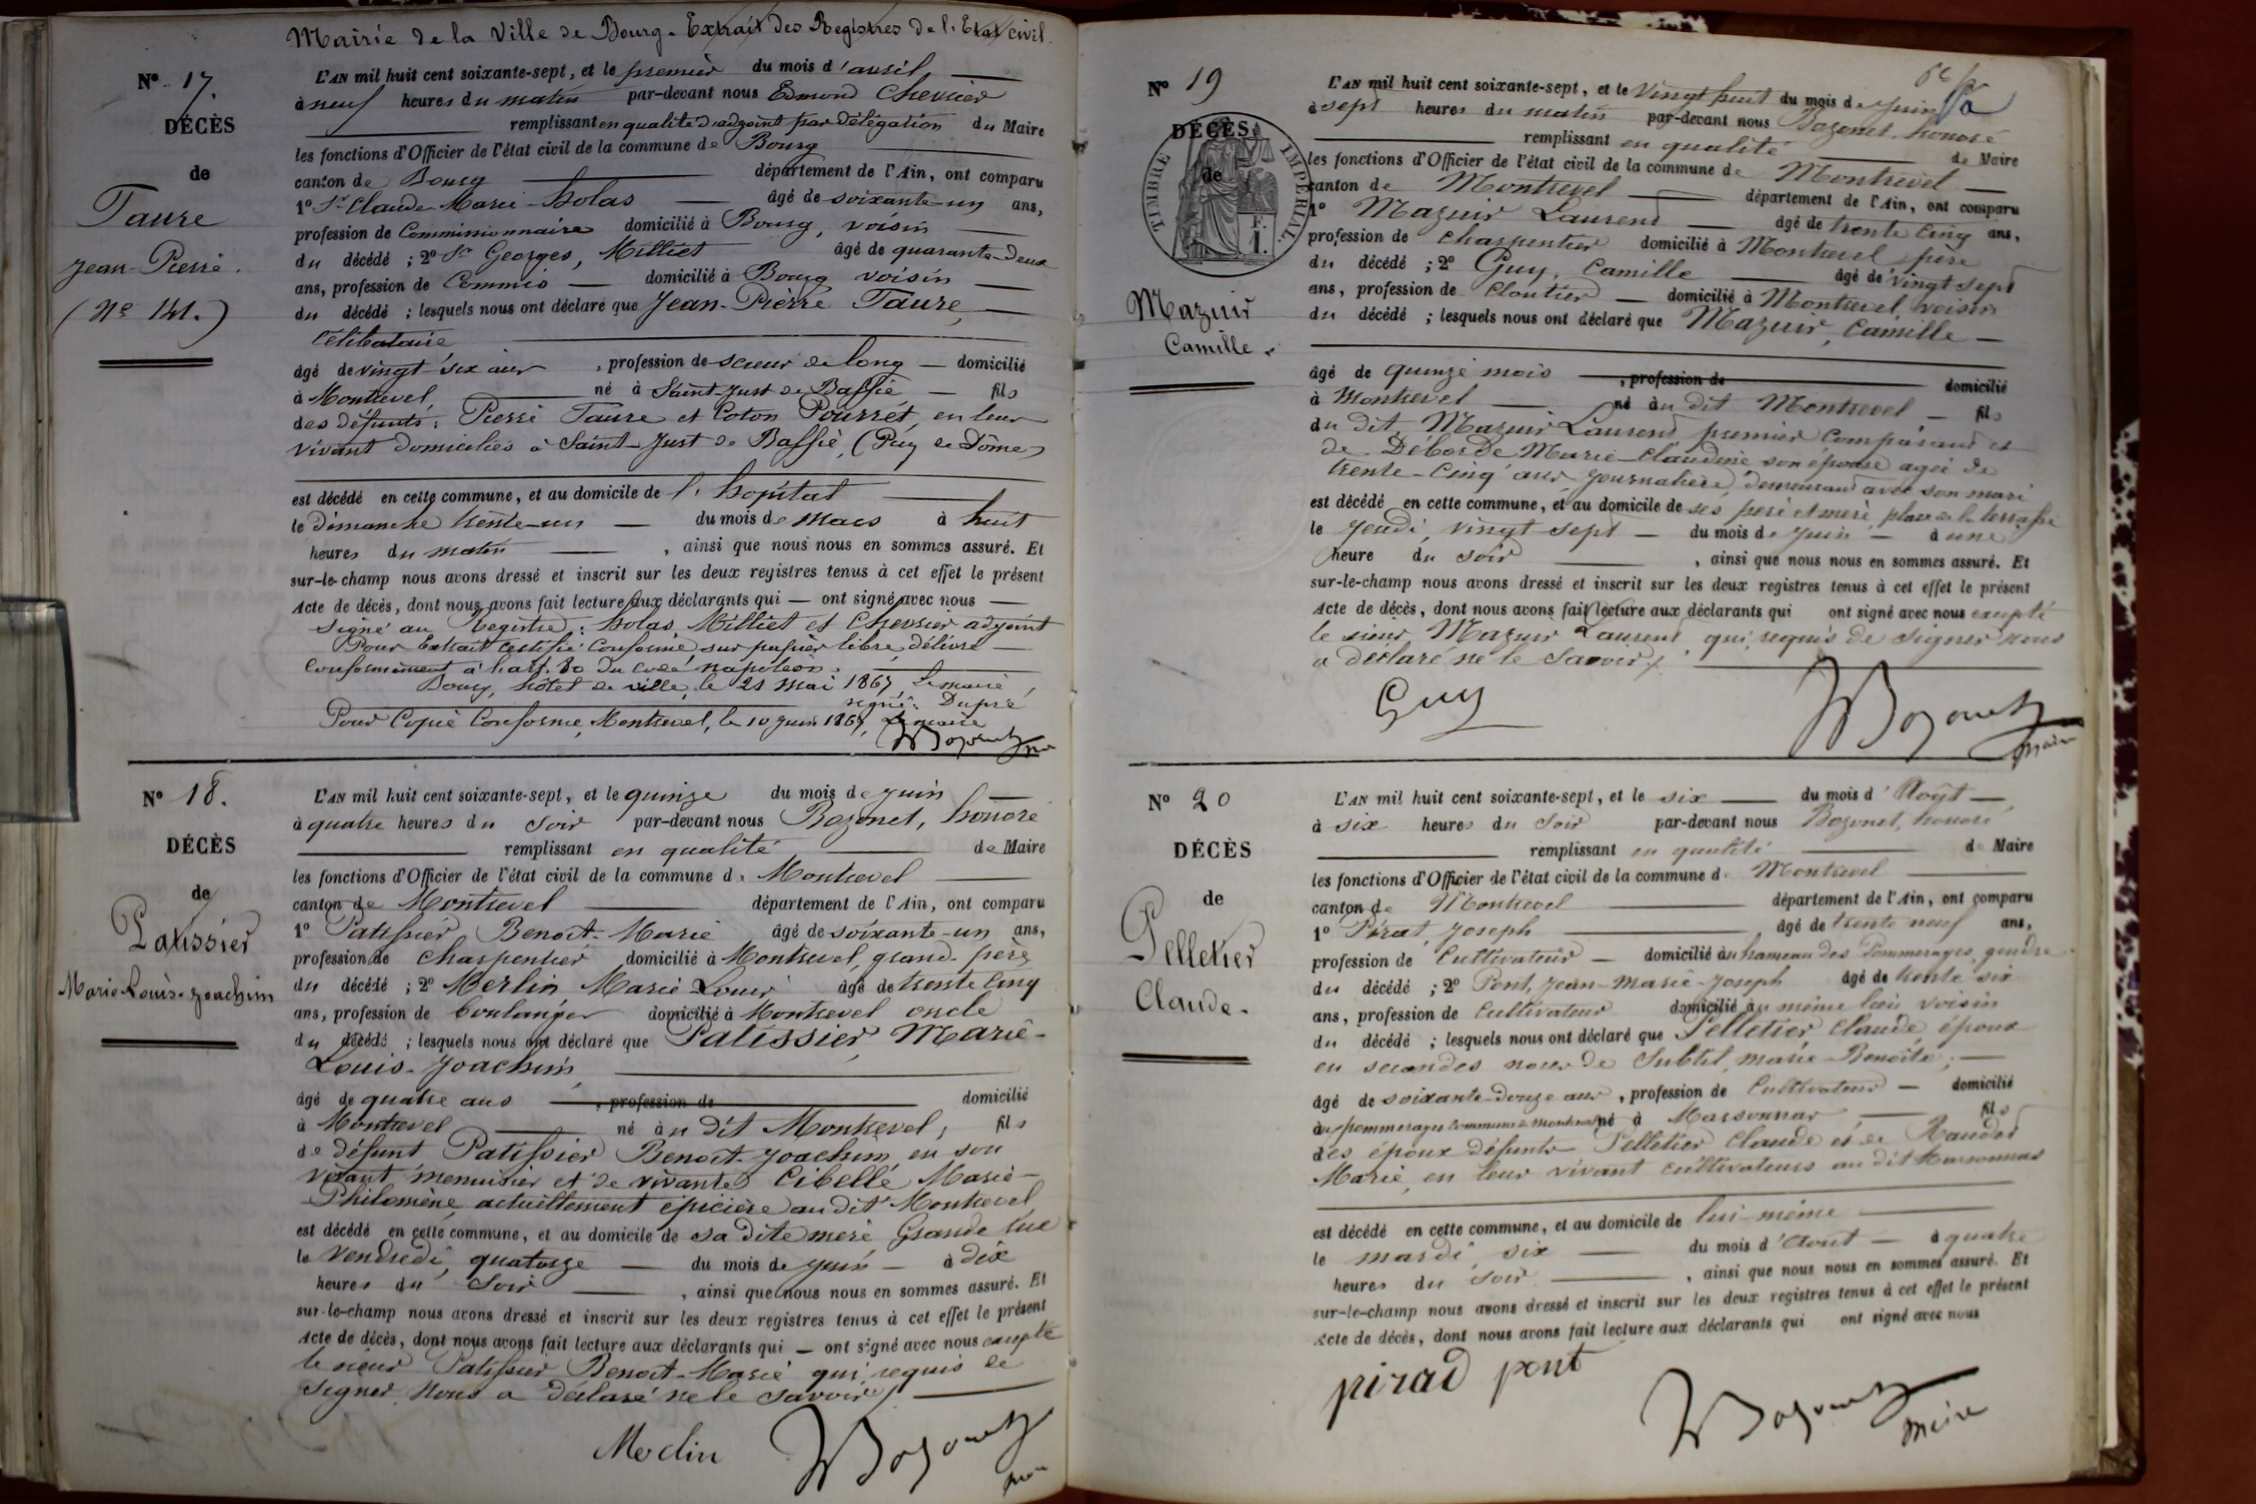 Mairie de la Ville de Bourg - Extrait des Registres de l'Etat civil.
N° 17.
DÉCÈS
de
Taure
Jean-Pierre.
(N° 141.)
L'AN mil huit cent soixante-sept, et le premier du mois d'avril
à neuf heures du matin par-devant nous Edmond Chevrier
remplissant en qualité d'adjoint par délégation du Maire
les fonctions d'Officier de l'état civil de la commune de Bourg
canton de Bourg département de l'Ain, ont comparu
1° Sr Claude-Marie Holas âgé de soixante-un ans,
profession de Commissionnaire domicilié à Bourg, voisin
du décédé ; 2° Sr Georges, Milliet âgé de quarante-deux
ans, profession de Commis domicilié à Bourg voisin
du décédé ; lesquels nous ont déclaré que Jean-Pierre Taure,
Célibataire
âgé de vingt-six ans, profession de scieur de long domicilié
à Montrevel, né à Saint-Just de Baffie fils
des défunts : Pierre Taure et Coton Pourret, en leur
vivant domiciliés à Saint-Just de Baffie, (Puy de Dôme)
est décédé en cette commune, et au domicile de l'hopital
le dimanche trente-un du mois de mars à huit
heures du matin, ainsi que nous nous en sommes assuré. Et
sur-le-champ nous avons dressé et inscrit sur les deux registres tenus à cet effet le présent
Acte de décès, dont nous avons fait lecture aux déclarants qui ont signé avec nous
Signé au Registre : Holas, Milliet et Chevrier adjoint
Pour Extrait certifié conforme sur papier libre délivré
conformément à l'art. 80 du code napoléon.
Bourg, hôtel de ville, le 21 mai 1867, Le maire,
signé : Dupré
Pour Copie Conforme, Montrevel, le 10 juin 1867, Le maire
Bozonet
N° 18.
DÉCÈS
de
Patissier
Marie-Louis-Joachim
L'AN mil huit cent soixante-sept, et le quinze du mois de juin
à quatre heures du soir par-devant nous Bozonet, honoré
remplissant en qualité de Maire
les fonctions d'Officier de l'état civil de la commune de Montrevel
canton de Montrevel département de l'Ain, ont comparu
1° Patissier Benoit-Marie âgé de soixante-un ans,
profession de charpentier domicilié à Montrevel, grand-père
du décédé ; 2° Merlin Marie Louis âgé de trente cinq
ans, profession de boulanger domicilié à Montrevel oncle
du décédé ; lesquels nous ont déclaré que Patissier Marie-
Louis-Joachim
âgé de quatre ans, profession de domicilié
à Montrevel né au dit Montrevel, fils
de défunt Patissier Benoit-Joachim, en son
vivant menuisier et de vivante Cibelle Marie-
Philomène, actuellement épicière au dit Montrevel
est décédé en cette commune, et au domicile de sa dite mère Grande rue
le vendredi, quatorze du mois de juin à dix
heures du soir, ainsi que nous nous en sommes assuré. Et
sur-le-champ nous avons dressé et inscrit sur les deux registres tenus à cet effet le présent
Acte de décès, dont nous avons fait lecture aux déclarants qui ont signé avec nous excepté
le sieur Patissier Benoit-Marie qui, requis de
signer, nous a déclaré ne le savoir
Merlin Bozonet
N° 19
DÉCÈS
de
TIMBRE IMPÉRIAL
Mazuir
Camille.
L'AN mil huit cent soixante-sept, et le vingt huit du mois de juin
à sept heures du matin par-devant nous Bozonet, honoré
remplissant en qualité de Maire
les fonctions d'Officier de l'état civil de la commune de Montrevel
canton de Montrevel département de l'Ain, ont comparu
1° Mazuir Laurent âgé de trente cinq ans,
profession de charpentier domicilié à Montrevel père
du décédé ; 2° Guy, Camille âgé de vingt sept
ans, profession de Cloutier domicilié à Montrevel, voisin
du décédé ; lesquels nous ont déclaré que Mazuir, Camille
âgé de quinze mois, profession de domicilié
à Montrevel né au dit Montrevel fils
du dit Mazuir Laurent premier comparant et
de Deborde Marie-Claudine son épouse agée de
trente-cinq ans journalière, demeurant avec son mari
est décédé en cette commune, et au domicile de ses père et mère, place de la terrasse
le jeudi, vingt sept du mois de juin à une
heure du soir, ainsi que nous nous en sommes assuré. Et
sur-le-champ nous avons dressé et inscrit sur les deux registres tenus à cet effet le présent
Acte de décès, dont nous avons fait lecture aux déclarants qui ont signé avec nous excepté
le sieur Mazuir Laurent, qui, requis de signer nous
a déclaré ne le savoir
Guy Bozonet
maire
N° 20
DÉCÈS
de
Pelletier
Claude.
L'AN mil huit cent soixante-sept, et le six du mois d'Août
à six heures du soir par-devant nous Bozonet, honoré
remplissant en qualité de Maire
les fonctions d'Officier de l'état civil de la commune de Montrevel
canton de Montrevel département de l'Ain, ont comparu
1° Pirat, Joseph âgé de trente neuf ans,
profession de Cultivateur domicilié au hameau des Pommerages, gendre
du décédé ; 2° Pont, Jean-Marie-Joseph âgé de trente six
ans, profession de Cultivateur domicilié au même lieu voisin
du décédé ; lesquels nous ont déclaré que Pelletier Claude, époux
en secondes noces de Subtil, Marie-Benoîte,
âgé de soixante-douze ans, profession de Cultivateur domicilié
aux pommerages commune de Montrevel né à Marsonnas fils
des époux défunts Pelletier Claude et de
Marie, en leur vivant cultivateurs au dit Marsonnas
est décédé en cette commune, et au domicile de lui-même
le mardi six du mois d'août à quatre
heures du soir, ainsi que nous nous en sommes assuré. Et
sur-le-champ nous avons dressé et inscrit sur les deux registres tenus à cet effet le présent
Acte de décès, dont nous avons fait lecture aux déclarants qui ont signé avec nous
pirad pont
Bozonet
maire